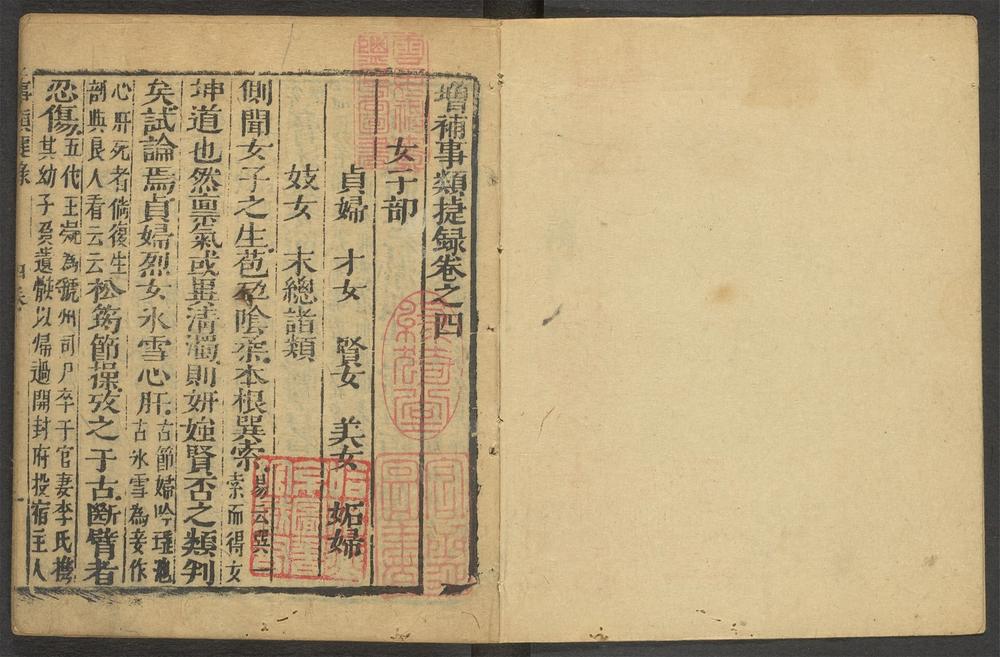 增補事類捷録卷之四
女子部
貞婦 才女 賢女 美女 妬婦
妓女 末總諸類
側聞女子之生苞孕陰柔本根巽索易云巽一索而得女
坤道也然禀氣或異清濁則妍媸賢否之類判
矣試論焉貞婦烈女氷雪心肝古節婦吟瑤池古氷雪為妾作
心肝死者倘復生剖與良人看云云松筠節操攷之于古斷臂者
忍傷五代王凝為虢州司戶卒于官妻李氏携其幼子負遺骸以帰過開封府投宿主人
事類捷錄 四卷